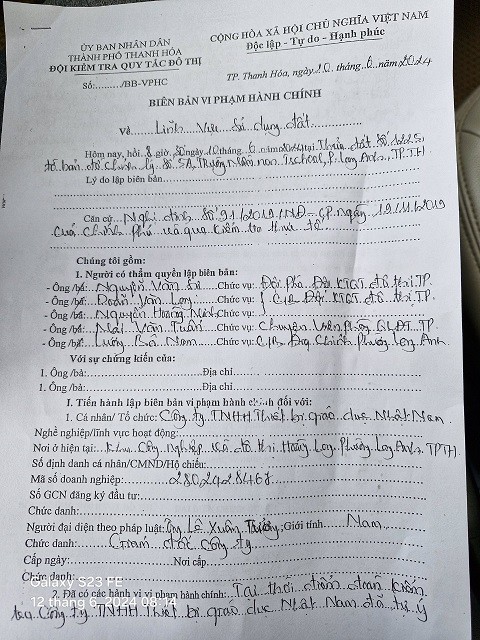 ỦY BAN NHÂN DÂN
THÀNH PHỐ THANH HÓA
ĐỘI KIỂM TRA QUY TẮC ĐÔ THỊ
Số:........./BB-VPHC
CỘNG HÒA XÃ HỘI CHỦ NGHĨA VIỆT NAM
Độc lập - Tự do - Hạnh phúc
TP. Thanh Hóa, ngày 10 tháng 6 năm 2024
BIÊN BẢN VI PHẠM HÀNH CHÍNH
Về Lĩnh Vực Sử dụng đất
Hôm nay, hồi 8 giờ 30 ngày 10 tháng 6 năm 2024 tại Thửa đất số 1225
tờ bản đồ Chỉnh lý số 5A, Trường Mầm non Tschool, P. Long Anh, TP.TH
Lý do lập biên bản
Căn cứ Nghị định số 91/2019/NĐ-CP ngày 19/11/2019
của Chính Phủ và qua kiểm tra thực tế.
Chúng tôi gồm:
I. Người có thẩm quyền lập biên bản:
- Ông /bà: Nguyễn Văn Chức vụ: Đội Phó Đội KTQT đô thị TP.
- Ông /bà: Đoàn Văn Long Chức vụ: CB Đội KTQT đô thị TP.
- Ông /bà: Nguyễn Hoàng Minh Chức vụ:
- Ông /bà: Mai Văn Tuấn Chức vụ: Chuyên Viên Phòng QLĐT TP.
- Ông /bà: Lương Bá Nam Chức vụ: C/B Địa Chính Phường Long Anh.
Với sự chứng kiến của:
1. Ông /bà: Địa chỉ
1. Ông /bà: Địa chỉ
I. Tiến hành lập biên bản vi phạm hành chính đối với:
1. Cá nhân/ Tổ chức: Công ty TNHH Thiết bị giáo dục Nhật Nam
Nghề nghiệp/lĩnh vực hoạt động:
Nơi ở hiện tại: Khu Công Nghiệp và đô thị Hoàng Long Phường Long Anh TPTH
Số định danh cá nhân/CMND/Hộ chiếu:
Mã số doanh nghiệp: 2802428467
Số GCN đăng ký đầu tư:
Chức danh:
Người đại diện theo pháp luật: Ông Lê Xuân Giới tính Nam
Chức danh: Giám đốc Công ty
Cấp ngày: Nơi cấp
Chức danh:
2. Đã có các hành vi vi phạm hành chính: Tại thời điểm đoàn kiểm
tra Công ty TNHH Thiết bị giáo dục Nhật Nam đã tự ý
Galaxy S23 FE
12 tháng 6, 2024 08:14